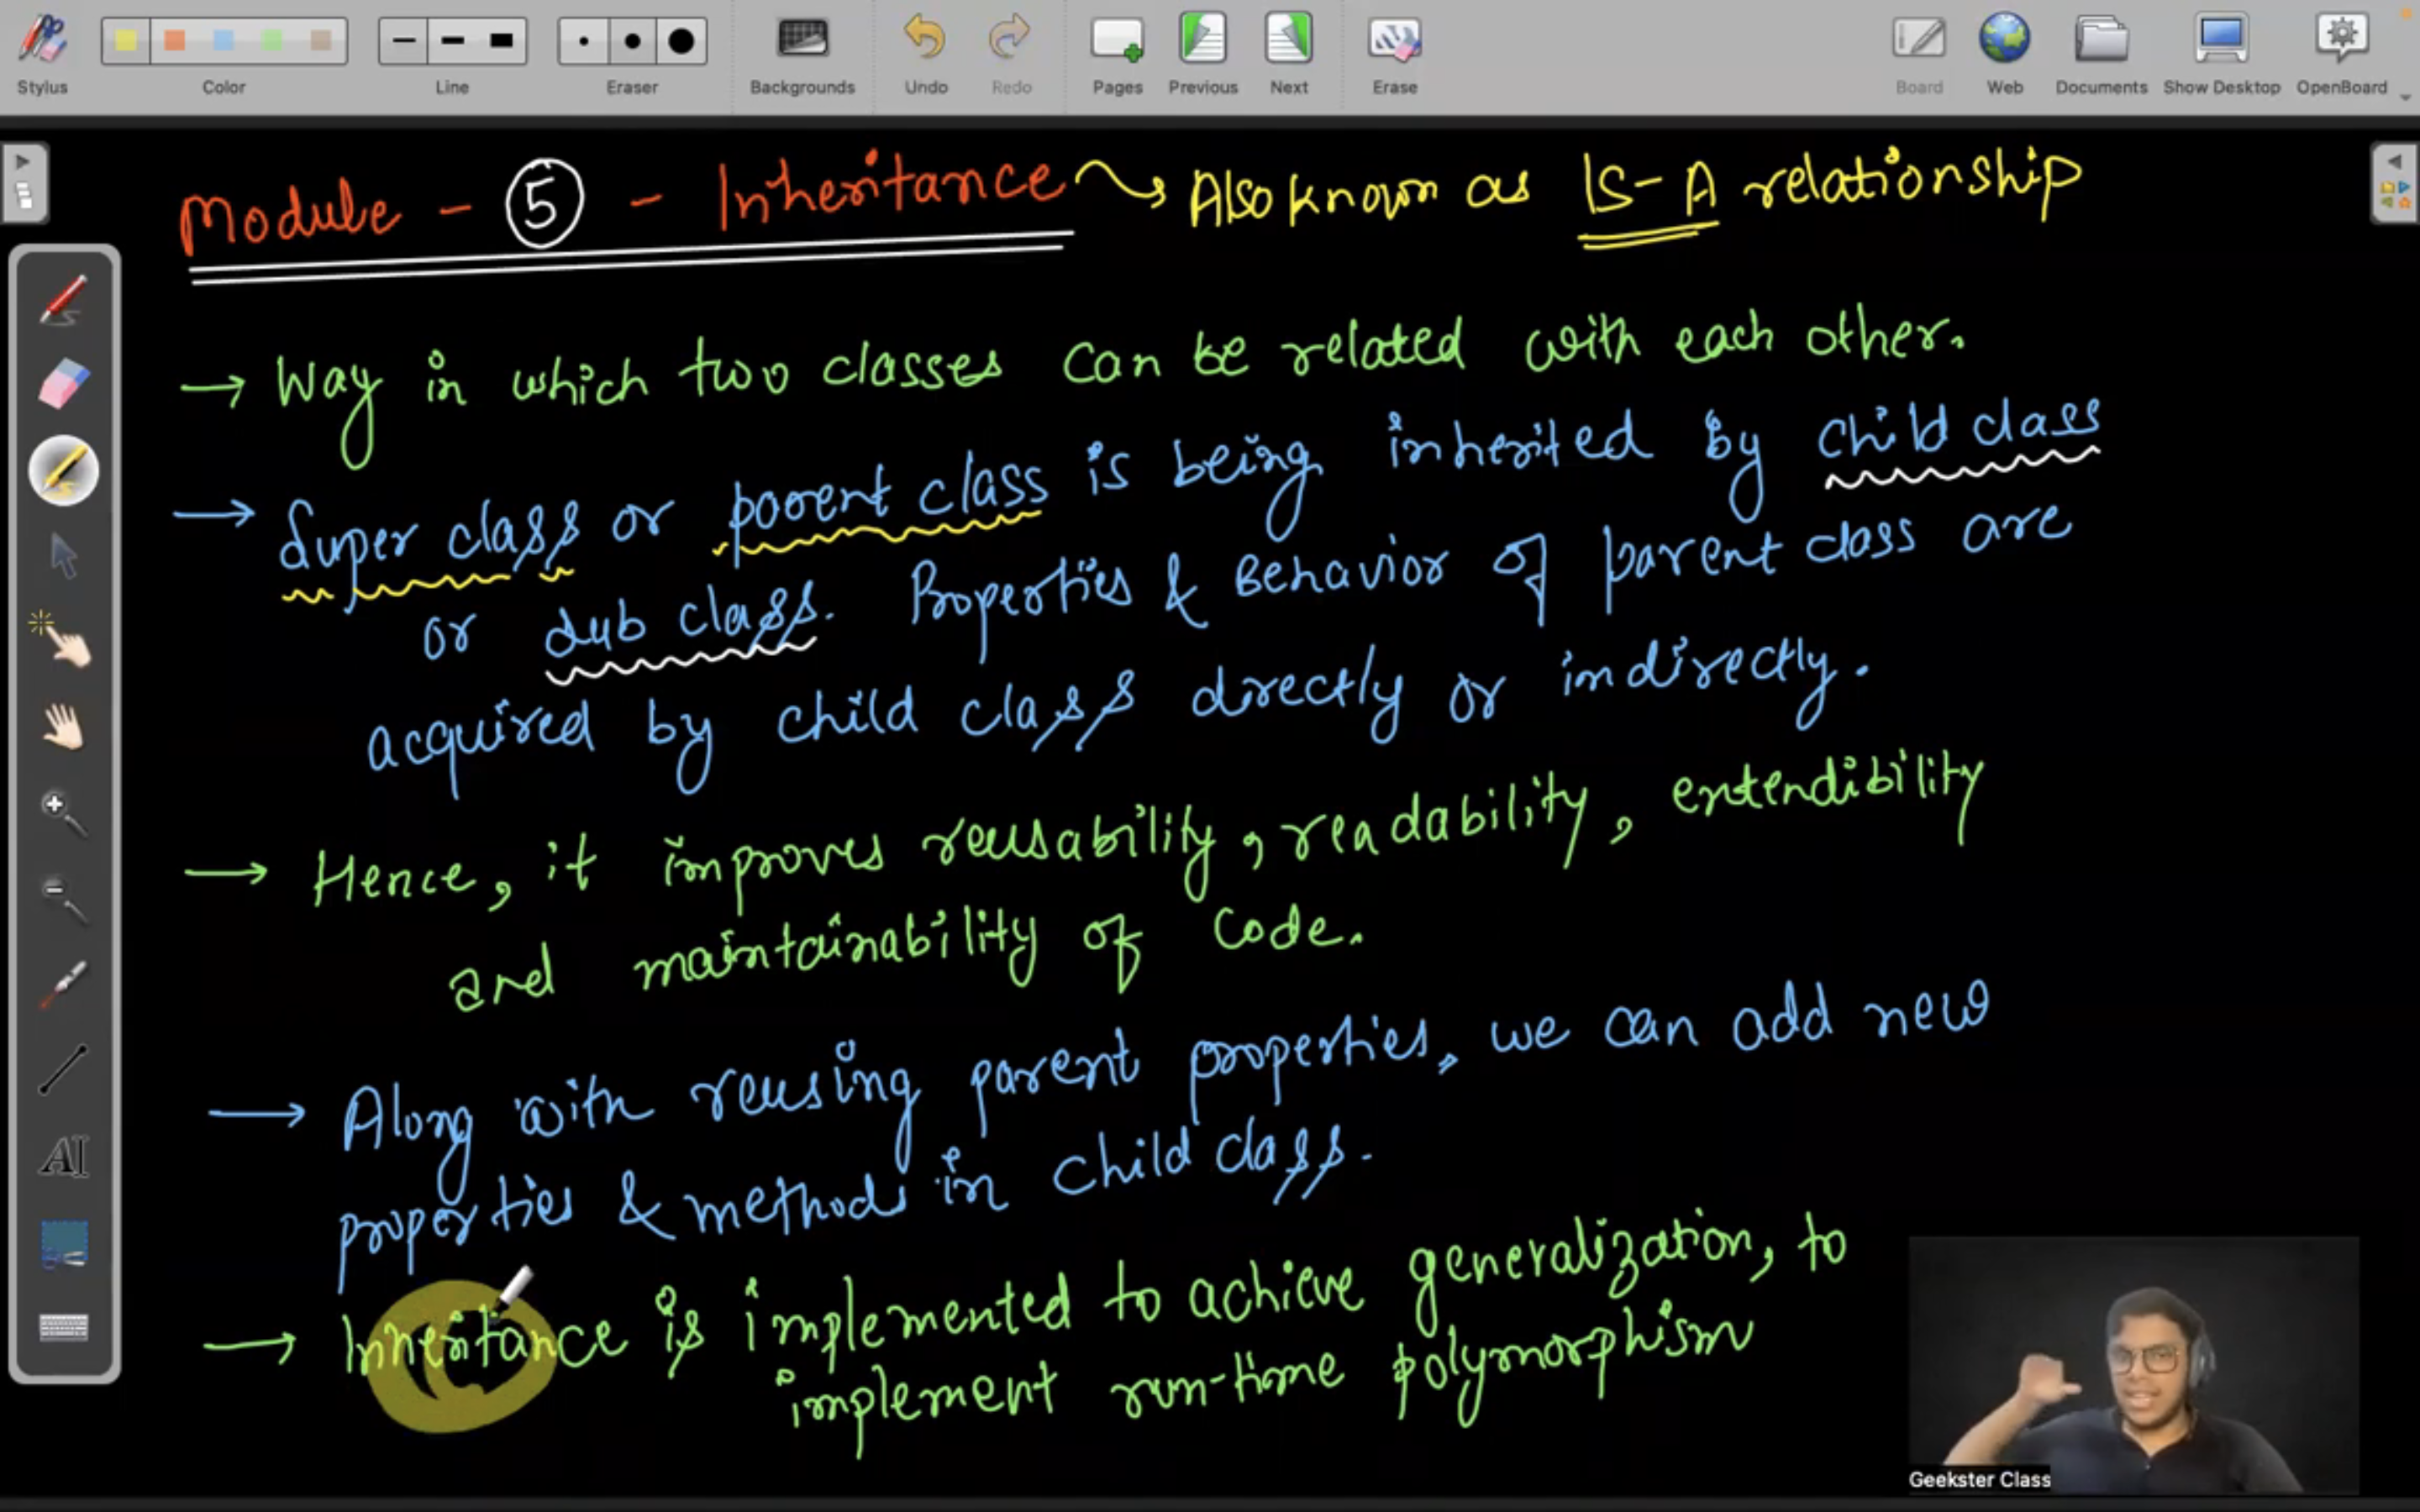 Stylus
Color
Line
Eraser
Backgrounds
Undo
Redo
Pages
Previous
Next
Erase
Board
Web
Documents
Show Desktop
OpenBoard
Module - 5 - Inheritance Also known as IS-A relationship
→ Way in which two classes can be related with each other.
→ Super class or parent class is being inherited by child class
or sub class. Properties & Behavior of parent class are
acquired by child class directly or indirectly.
→ Hence, it improves reusability, readability, extendibility
and maintainability of code.
→ Along with reusing parent properties, we can add new
properties & methods in child class.
→ Inheritance is implemented to achieve generalization, to
implement run-time polymorphism
AI
Geekster Class